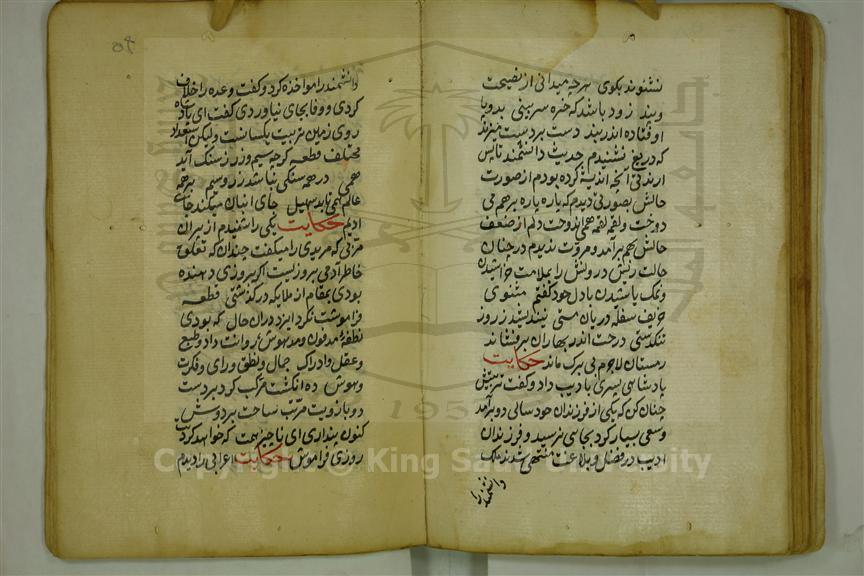 نشنوند بکوی هرچه میدانی از نصیحت
وپند زود باشد که خیره سر بینی بدو پا
اوفتاده اندر بند دست بردست میزند
که دریغ نشنیدم حدیث دانشمند تا پس
ازمدتی آنچه اندیشه کرده بودم از صورت
حالش بصورتی دیدم که پاره پاره برهم می
دوخت و لقمه لقمه همی اندوخت دلم از ضعف
حالش بهم برآمد و مروت ندیدم در چنان
حالت ریش درویش را بملامت خراشیدن
ونمک پاشیدن با دل خود گفتم مثنوی
حریف سفله در پایان مستی نیندیشد ز روز
تنکدستی درخت اندر بهاران برفشاند
زمستان لاجرم بی برک ماند حکایت
پادشاهی پسری با ادیب داد و کفت تربیتش
چنان کن که یکی از فرزندان خود سالی دو برآمد
وسعی بسیار کرد بجای نرسید و فرزندان
ادیب در فضل و بلاغت منتهی شدند ملک
دانشمند را
دانشمند را مواخذه کرد و گفت وعده را خلاف
کردی و وفا بجای نیاوردی کفت ای پادشاه
روی زمین تربیت یکسانست ولیکن استعداد
مختلف قطعه کرچه سیم و زر ز سنک آید
همی در همه سنکی نباشد زر و سیم بر همه
عالم همی تابد سهیل جای انبان میکند جای
ادیم حکایت یکی را شنیدم از پیران
مربی که مریدی را میکفت چندان که تعلق
خاطر آدمی بروزیست اکر بروزی دهنده
بودی بمقام از ملایکه درکذشتی قطعه
فراموشت نکرد ایزد دران حال که بودی
نطفه مدفون و مدهوش روانت داد و طبع
وعقل و ادراک جمال و نطق و رای و فکرت
وهوش ده انکشت مرتب کرد بردست
دو بازویت مرتب ساخت بردوش
کنون پنداری ای ناچیز همت که خواهد کردنت
روزی فراموش حکایت اعرابی را دیدم
Copyright © King Saud University
1957